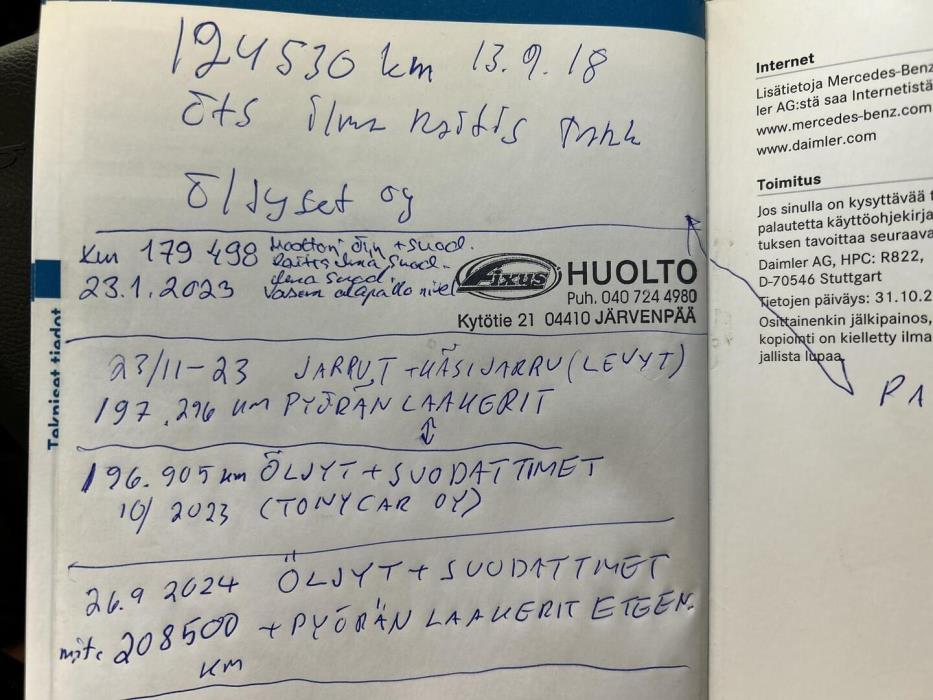 124530 km 13.9.18
öts ilma raitis
Öljyset oy
Km 179 498 Moottori öljn + suod.
raitisilma suod.
23.1.2023 ilma suod.
Vasem alapallo nivel
Fixus HUOLTO
Puh. 040 724 4980
Kytötie 21 04410 JÄRVENPÄÄ
23/11-23 JARRUT + KÄSIJARRU (LEVYT)
197.296 KM PYÖRÄN LAAKERIT
↕
196.905 km ÖLJYT + SUODATTIMET
10/2023 (TONYCAR OY)
26.9 2024 ÖLJYT + SUODATTIMET
mit. 208500 + PYÖRÄN LAAKERIT ETEEN.
KM
Tekniset tiedot
Internet
Lisätietoja Mercedes-Benz
ler AG:stä saa Internetistä
www.mercedes-benz.com
www.daimler.com
Toimitus
Jos sinulla on kysyttävää
palautetta käyttöohjekirja
tuksen tavoittaa seuraava
Daimler AG, HPC: R822,
D-70546 Stuttgart
Tietojen päiväys: 31.10.2
Osittainenkin jälkipainos,
kopiointi on kielletty ilma
jallista lupaa.